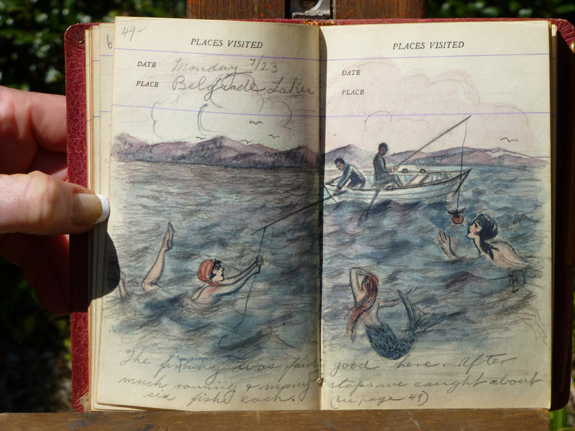 49-
PLACES VISITED
DATE Monday 7/23
PLACE Belgrade Lakes
PLACES VISITED
DATE
PLACE
The fishing was fairly good here. After
much rowing & many stops we caught about
six fish each. (see page 49)